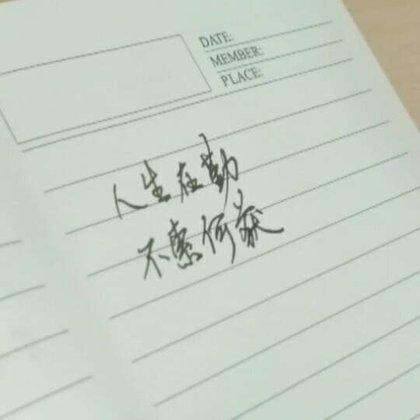 DATE:
MEMBER:
PLACE:
人生在勤
不索何获